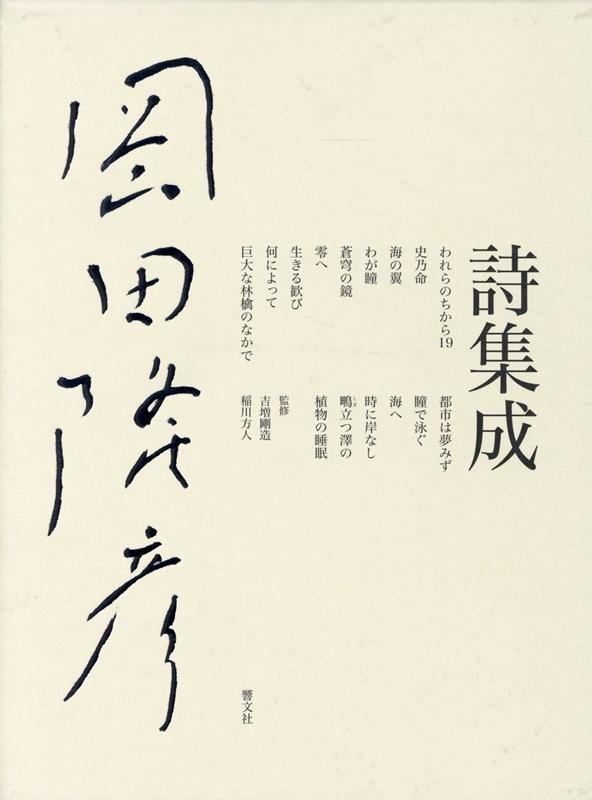 詩集成
われらのちから19
史乃命
海の翼
わが瞳
蒼穹の鏡
零へ
生きる歓び
何によって
巨大な林檎のなかで
都市は夢みず
瞳で泳ぐ
海へ
時に岸なし
鴫立つ澤の
しぎ
植物の睡眠
監修
吉増剛造
稲川方人
岡田隆彦
響文社